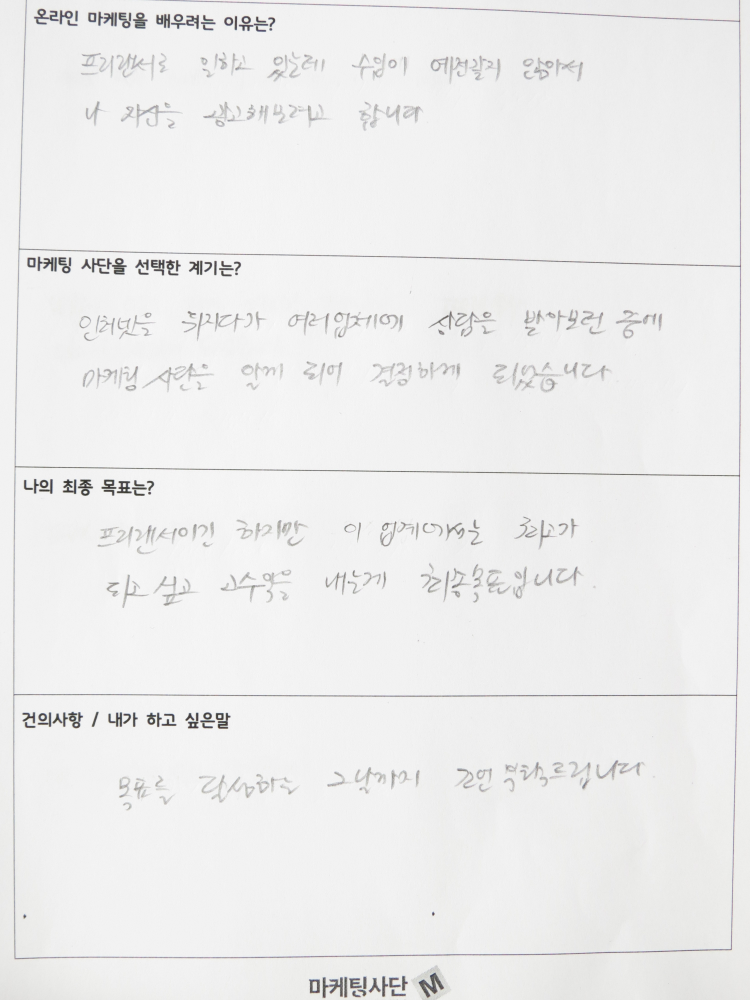 온라인 마케팅을 배우려는 이유는?
프리랜서로 일하고 있는데 수입이 예전같지 않아서
나 자신을 광고해보려고 합니다
마케팅 사단을 선택한 계기는?
인터넷을 뒤지다가 여러업체에 상담을 받아보던 중에
마케팅 사단을 알게 되어 결정하게 되었습니다.
나의 최종 목표는?
프리랜서이긴 하지만 이 업계에서는 최고가
되고 싶고 고수익을 내는게 최종목표입니다.
건의사항 / 내가 하고 싶은말
목표를 달성하는 그날까지 조언 부탁드립니다.
마케팅사단 M